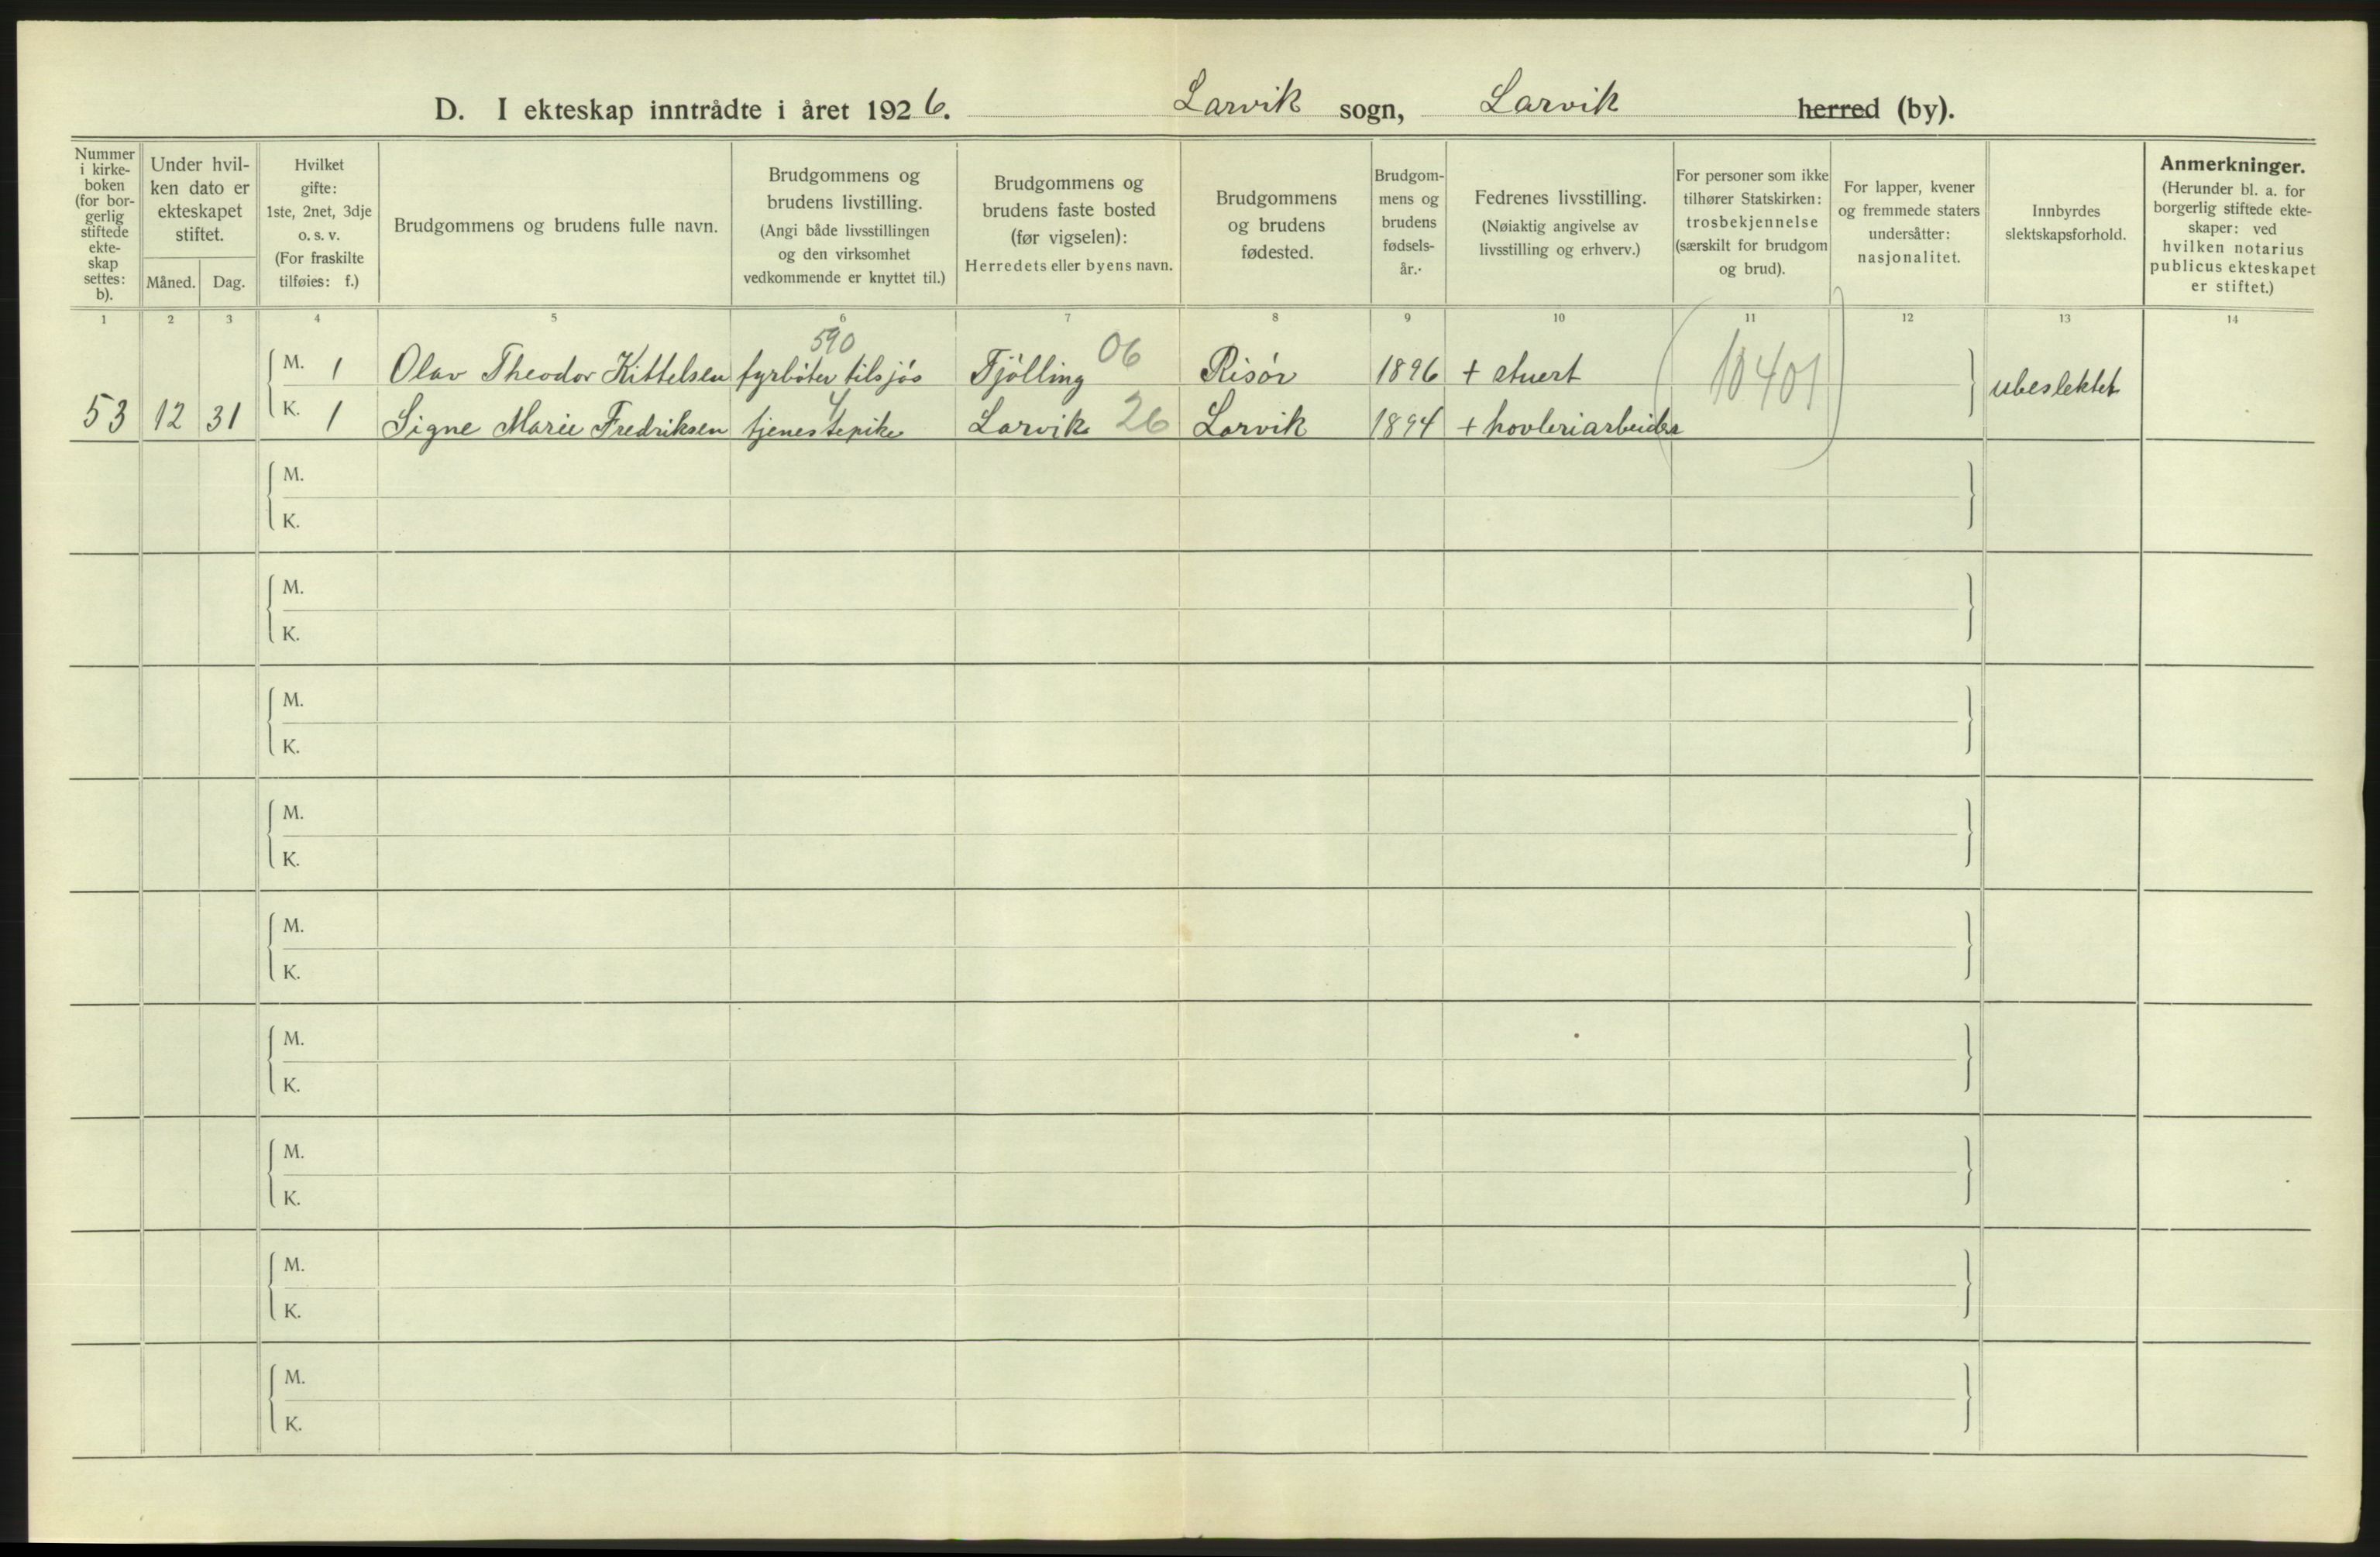 D. I ekteskap inntrådte i året 1926. Larvik sogn, Larvik herred (by).
Nummer
i kirke-
boken
(for bor-
gerlig
stiftede
ekte-
skap
settes:
b).
Under hvil-
ken dato er
ekteskapet
stiftet.
Måned. Dag.
Hvilket
gifte:
1ste, 2net, 3dje
o. s. v.
(For fraskilte
tilføies: f.)
Brudgommens og brudens fulle navn.
Brudgommens og
brudens livstilling.
(Angi både livsstillingen
og den virksomhet
vedkommende er knyttet til.)
Brudgommens og
brudens faste bosted
(før vigselen):
Herredets eller byens navn.
Brudgommens
og brudens
fødested.
Brudgom-
mens og
brudens
fødsels-
år.
Fedrenes livsstilling.
(Nøiaktig angivelse av
livsstilling og erhverv.)
For personer som ikke
tilhører Statskirken:
trosbekjennelse
(særskilt for brudgom
og brud).
For lapper, kvener
og fremmede staters
undersåtter:
nasjonalitet.
Innbyrdes
slektskapsforhold.
Anmerkninger.
(Herunder bl. a. for
borgerlig stiftede ekte-
skaper: ved
hvilken notarius
publicus ekteskapet
er stiftet.)
1 2 3 4 5 6 7 8 9 10 11 12 13 14
590 06
M. 1 Olav Theodor Kittelsen fyrbøter tilsjøs Tjølling Risør 1896 + stuert (10401) ubeslektet
4
53 12 31 K. 1 Signe Marie Fredriksen tjenestepike Larvik 26 Larvik 1894 + hovleriarbeider
M.
K.
M.
K.
M.
K.
M.
K.
M.
K.
M.
K.
M.
K.
M.
K.
M.
K.